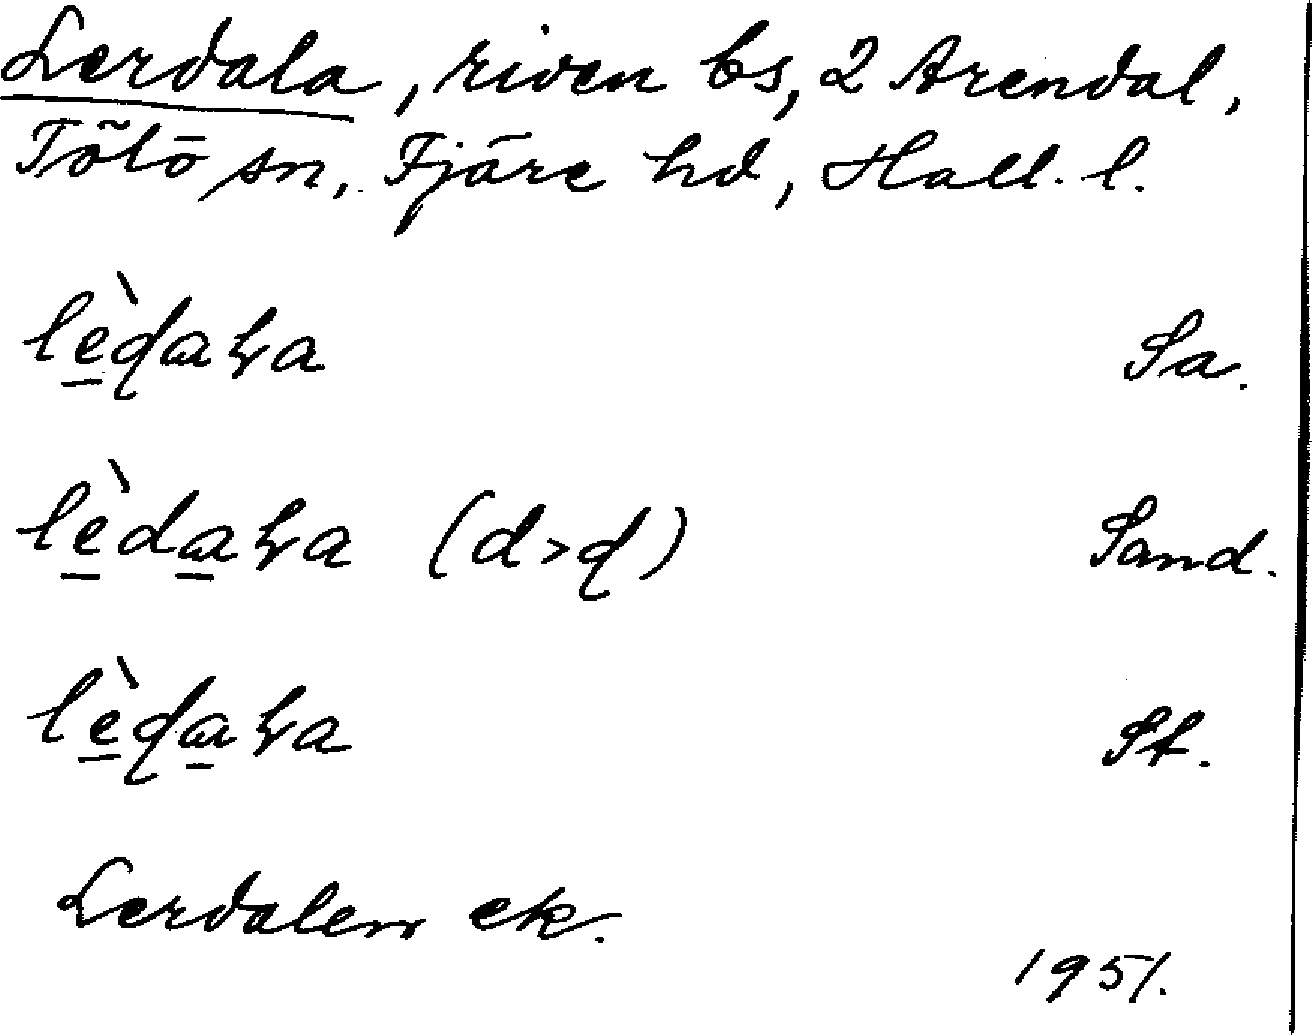 Lerdala, riven bs, 2 Arendal,
Tölö sn, Fjäre hd, Hall. l.
lèɖaɽa Sa.
lèdaɽa (d>ɖ) Sand.
lèɖaɽa St.
Lerdalen ek.
1951.